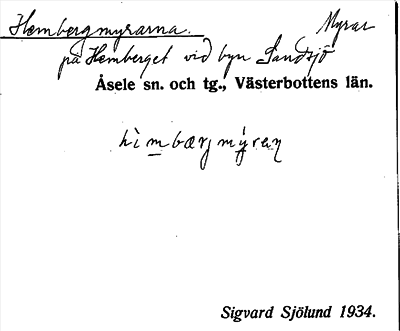 Hembergmyrarna. Myrar
på Hemberget vid byn Sandsjö
Åsele sn. och tg., Västerbottens län.
Sigvard Sjölund 1934.